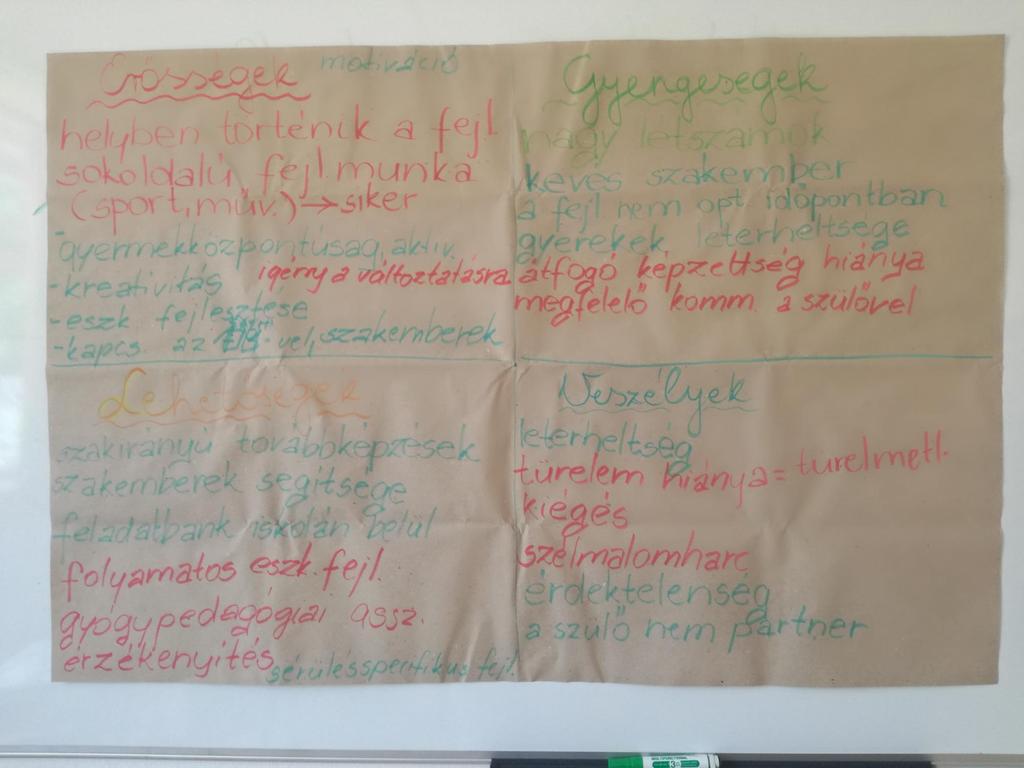 Erősségek motiváció
helyben történik a fejl.
sokoldalú fejl. munka
(sport, műv.) → siker
-gyermekközpontúság, aktiv.
-kreativitás igény a változtatásra
-eszk fejlesztése
-kapcs. az vel, szakemberek
Gyengeségek
nagy létszámok
kevés szakember
a fejl nem opt. időpontban
gyerekek leterheltsége
átfogó képzettség hiánya
megfelelő komm. a szülővel
Lehetőségek
szakirányú továbbképzések
szakemberek segítsége
feladatbank iskolán belül
folyamatos eszk. fejl.
gyógypedagógiai assz.
érzékenyítés
sérülésspecifikus fejl.
Veszélyek
leterheltség
türelem hiánya = türelmetl.
kiégés
szélmalomharc
érdektelenség
a szülő nem partner